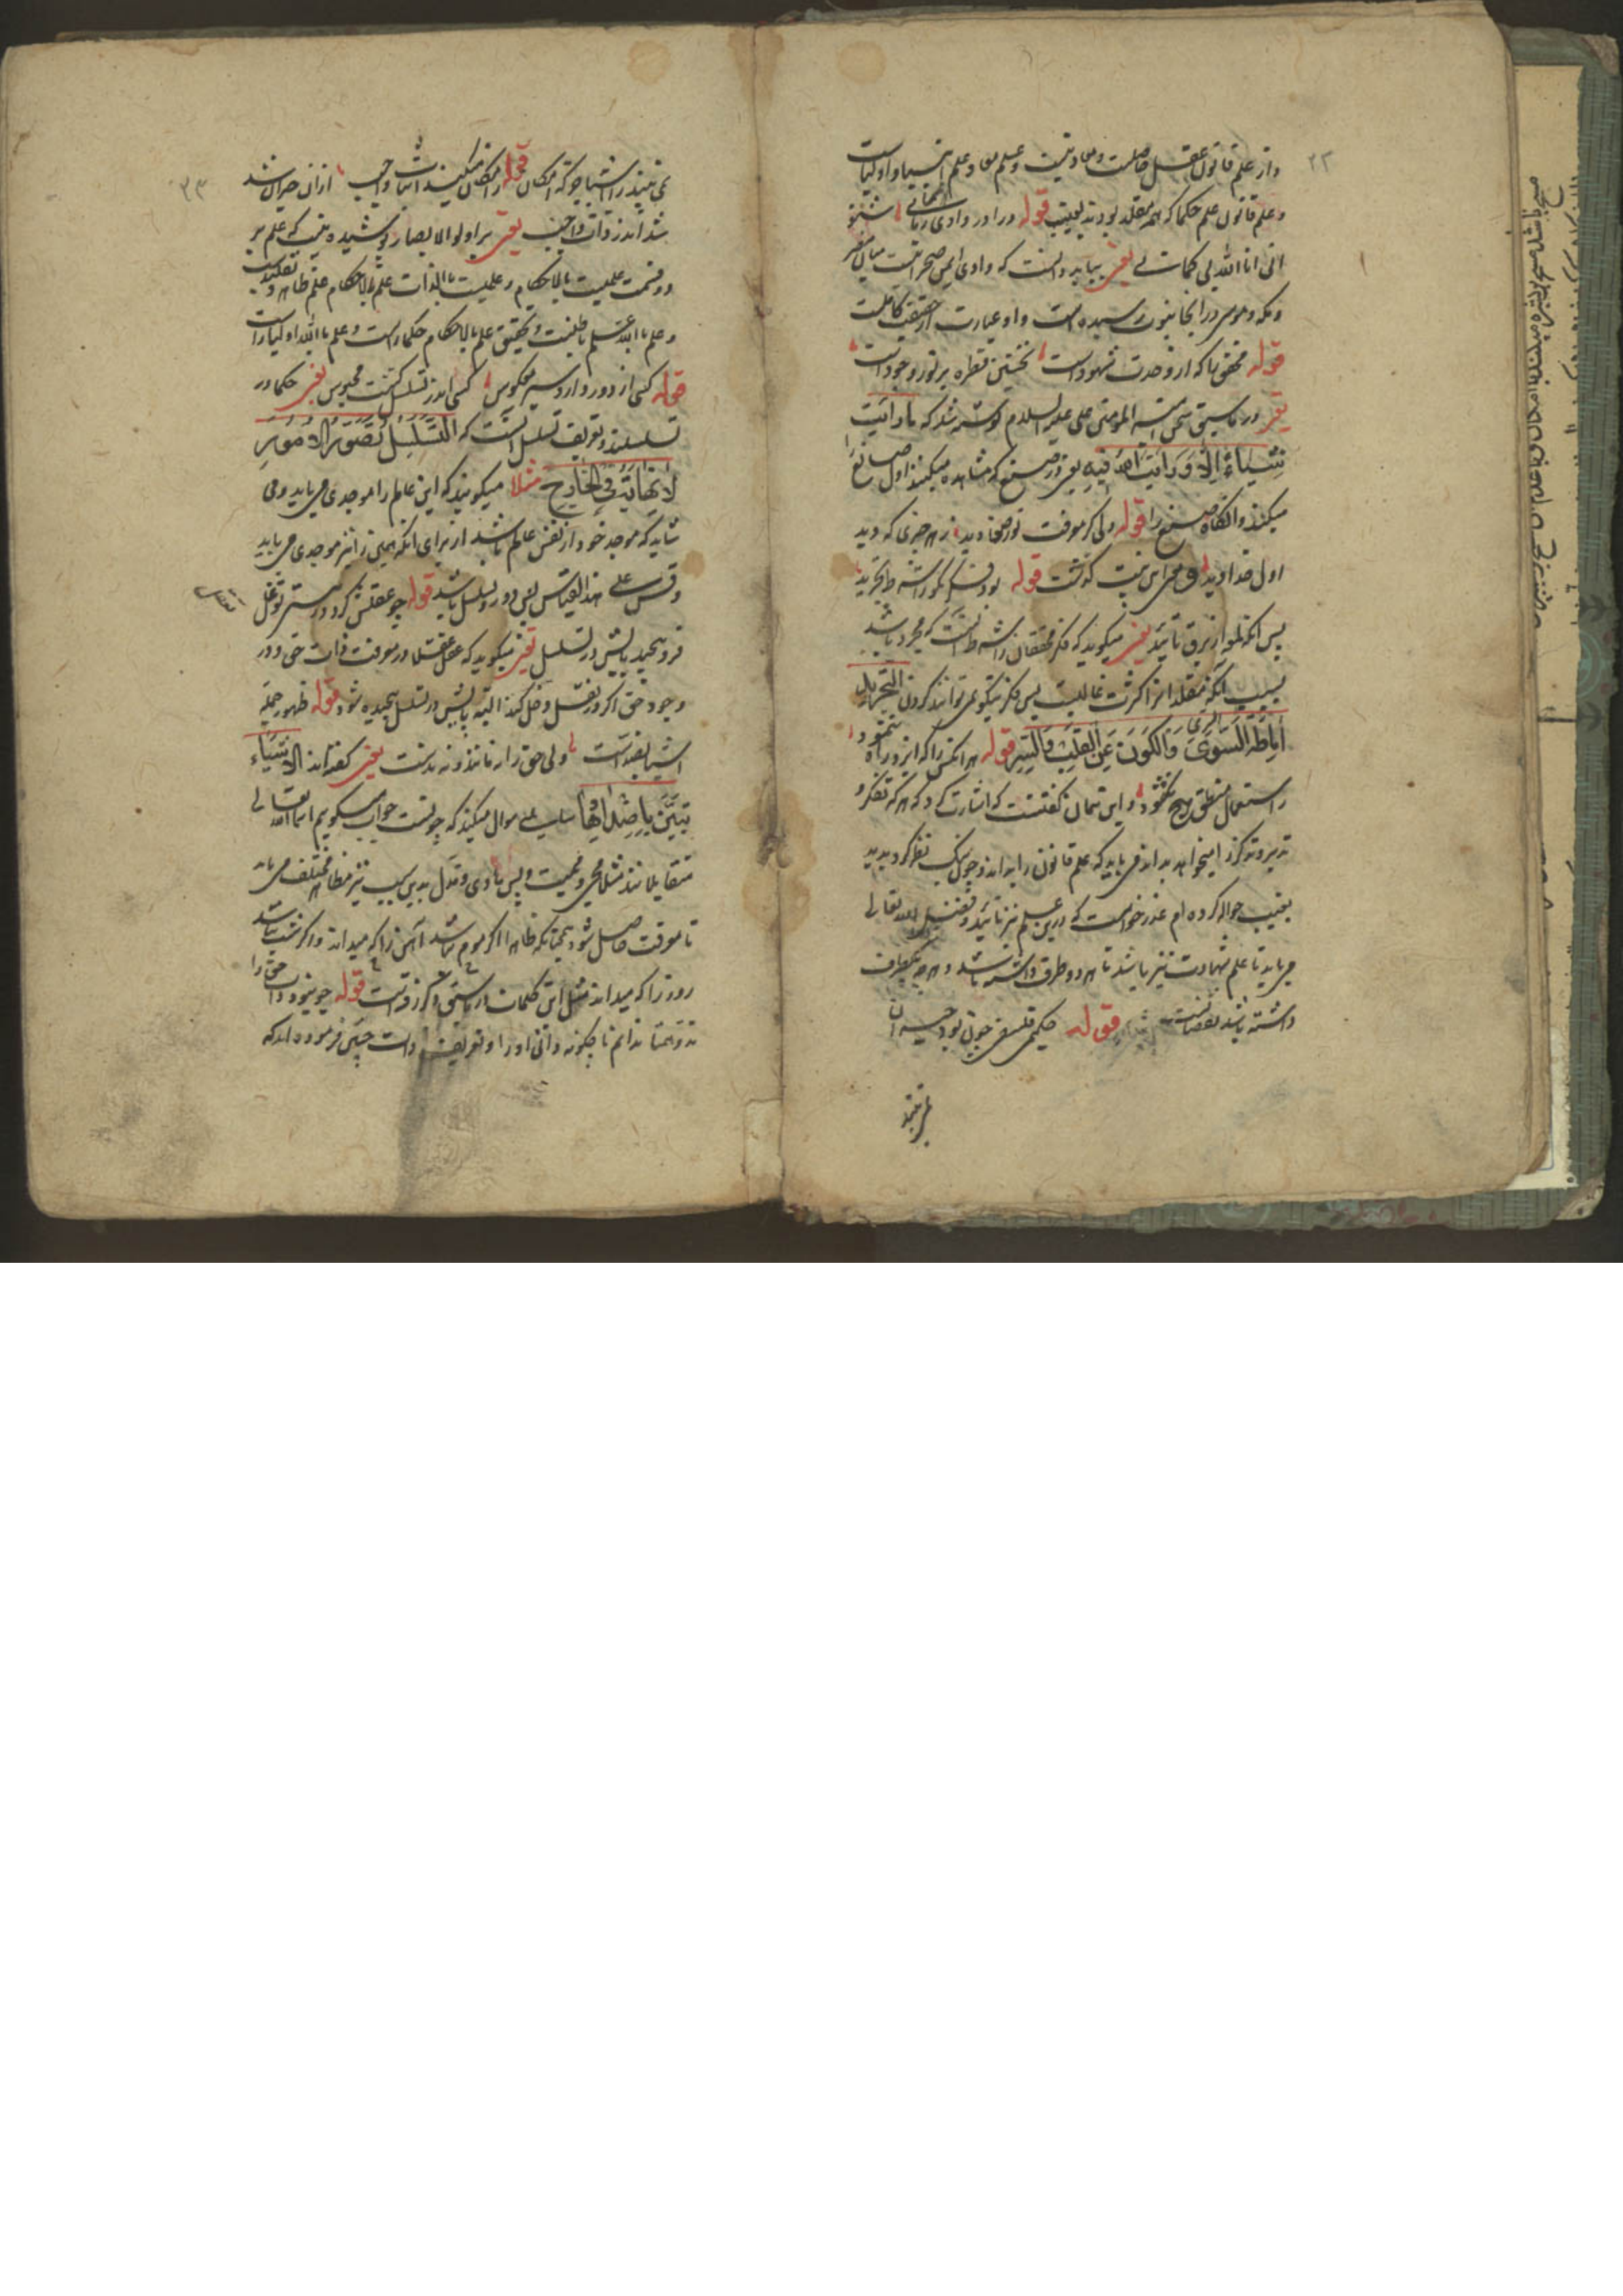 ۲۲
و از علم قانون عقل حاصلست و معاد نیست و علم معاد علم انبیا و اولیاست
و علم قانون علم حکما که همه مقلد بودند بغیب قوله درا در وادی ایمن زمانی شنو
انی انا الله بی گمانی یعنی بباید دانست که وادی ایمن صحراییست میان مصر
و مکه و موسی در آنجا بنبوت رسیده است و او عبارت از حقیقت کاملست
قوله محقق را که از وحدت شهود است نخستین نظره بر نور وجود است
یعنی در ماسبق سخن امیر المومنین علی علیه السلام نوشته شد که ما رایت
شیاء الا و رایت الله فیه یعنی در صنع که مشاهده میکند اول صانع
میکند و آنگاه صنع را قوله دلی کز معرفت نور و صفا دید ز هر چیزی که دید
اول خدا دید و معنی این بیت گذشت قوله بود فکر نکو را شرط تجرید
پس آنگه لمعه از برق تایید یعنی میگوید که فکر محققان را شرط آنست که مجرد باشد
بسبب آنکه مقلدانرا کثرت غالبست پس فکر نیکو نمی توانند کردن التجرید
اماطة السوی والکون عن القلب والسر قوله هر آنکس را که ایزد راه ننمود
ز استعمال منطق هیچ نگشود و این همان گفتست که اشارت کرد که هر که تفکر و
تدبر و تذکر را میخواهد بداند می باید که علم قانون را بداند و چون نیک نظر کردیم
بغیب حواله کرده ام عذر خواست که درین علم نیز تایید و فضل الله تعالی
می باید تا علم شهادت نیز باشد تا هر دو طرف داشته باشد و هر چه یکطرف
داشته باشد نقصانست قوله حکیم فلسفی چون بود حیران
نمی بیند
۲۳
نمی بیند ز اشیا جز که امکان قوله ز امکان میکند اثبات واجب ازان حیران شد
شد اندر ذات واجب یعنی بر اولو الابصار پوشیده نیست که علم بر
دو قسمت علمیست بالاحکام و علمیست باالذات علم بالاحکام علم ظاهر و تقلیدست
و علم باالله علم باطنست و تحقیق علم بالاحکام حکما راست و علم باالله اولیا راست
قوله گهی از دور دارد سیر معکوس گهی اندر تسلسل گشت محبوس یعنی حکما در
تسلسلند و تعریف تسلسل آنست که التسلسل تصور الامور
لا نهایة فی الخارج مثلا میگویند که این عالم را موجدی می باید و می
شاید که موجد خود از نفس عالم باشد از برای آنکه همین را نیز موجدی می باید
وقس علی هذا القیاس پس دور و تسلسل باشد قوله چو عقلش کرد در هستی توغل
فرو پیچید پایش در تسلسل یعنی میگوید که عقل عقلا در معرفت ذات حق و در
وجود حق اگر در عقل دخل کند البته پایش در تسلسل پیچیده شود قوله ظهور جمله
اشیا بضد است ولی حق را نه مانند و نه ندست یعنی گفته اند الاشیاء
تتبین باضدادها سایلی سوال میکند که چونست جواب میگویم اسما الله تعالی
متقابلانند مثلا محیی و ممیت و پس هادی و مذل بدین سبب نیز مظاهر مختلف می باید
تا معرفت حاصل شود همچنانکه ظاهرا اگر موم نباشد آهن را که میداند و اگر شب نباشد
روز را که میداند مثل این کلمات در ماسبق ذکر رفت قوله چو نبود ذات حق را
ند و همتا ندانم تا چگونه دانی او را و تعریف ذات چنین فرموده اند که